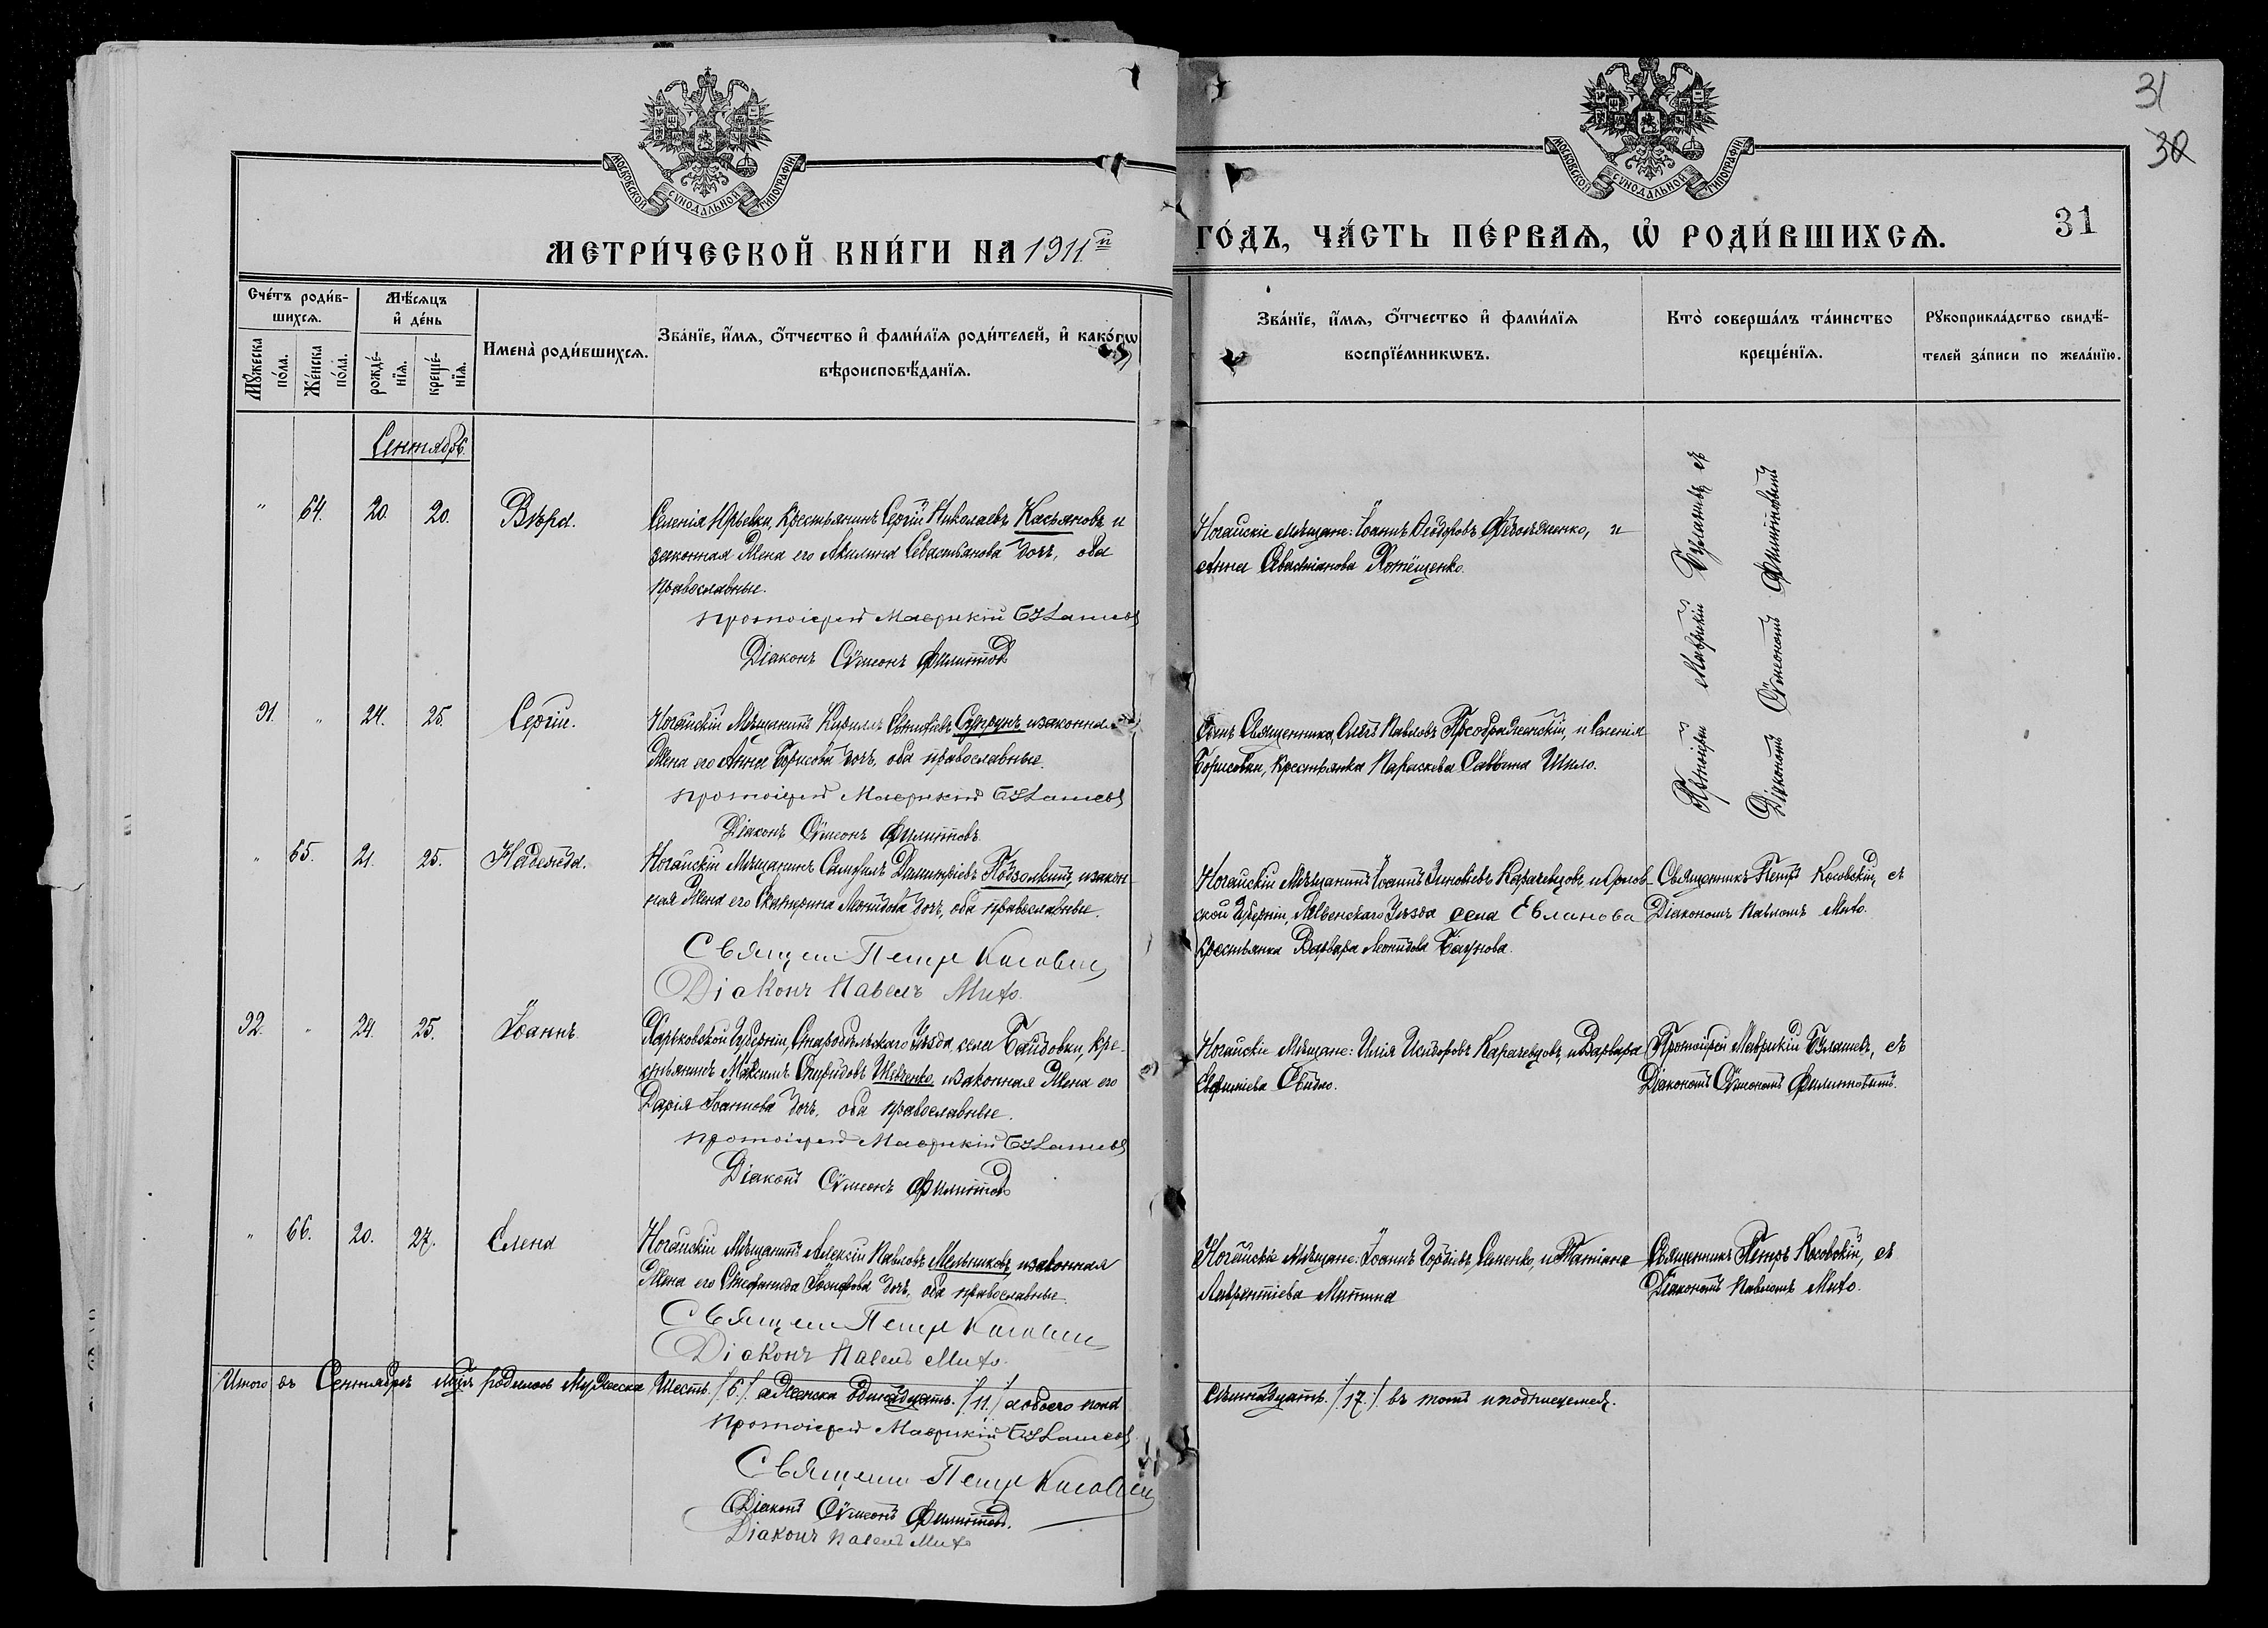 31
30
МОСКОВСКОЙ СѴНОДАЛЬНОЙ ТИПОГРАФІИ
МОСКОВСКОЙ СѴНОДАЛЬНОЙ ТИПОГРАФІИ
МЕТРИ́ЧЕСКОЙ КНИ́ГИ НА 1911й
ГО́ДЪ, ЧА́СТЬ ПЕ́РВАѦ, Ѡ҆ РОДИ́ВШИХСѦ.
31
Сче́тъ роди́в-
шихсѧ.
Мꙋ́жеска по́ла.
Же́нска по́ла.
Мѣ́сѧцъ
и҆ де́нь
рожде́-
нїѧ.
креще́-
нїѧ.
Имена̀ роди́вшихсѧ.
Зва́нїе, и҆́мѧ, ѻ҆́тчество и҆ фами́лїѧ роди́телей, и҆ како́гѡ
вѣроисповѣ́данїѧ.
Зва́нїе, и҆́мѧ, ѻ҆́тчество и҆ фами́лїѧ
воспрїе́мникѡвъ.
Кто̀ соверша́лъ та́инство
креще́нїѧ.
Рꙋкоприкла́дство свидѣ́-
телей за́писи по жела́нїю.
Сентябрь.
" 64. 20. 20. Вѣра.
Селенія Юрьевки, Крестьянинъ Сергій Николаевъ Касьяновъ и
законная жена его Акилина Севастьянова дочь, оба
православные.
Протоіерей Маврикій Булашевъ
Діаконъ Сѵмеонъ Филипповъ
Ногайскіе мѣщане: Іоаннъ Ѳеодоровъ и
Анна Севастіанова
Протоіерей Маврикій Булашевъ, съ
Діакономъ Сѵмеономъ Филипповымъ
91. " 24. 25. Сергій.
Ногайскій Мѣщанинъ Кириллъ Супрунъ и законная
жена его Анна Борисова дочь, оба православные.
Протоіерей Маврикій Булашевъ
Діаконъ Сѵмеонъ Филипповъ
Сынъ Священника, Олегъ Павловъ Преображенскій, и Селенія
Борисовки, Крестьянка Параскева Саввина Шило.
" 65. 21. 25. Надежда.
Ногайскій Мѣщанинъ Самуилъ Димитріевъ Подзолкинъ, и закон-
ная жена его Екатерина Леонидова дочь, оба православные.
Священ Петръ Косовскій
Діаконъ Павелъ Мито.
Ногайскій Мѣщанинъ Іоаннъ Зиновіевъ Карачевцовъ и Орлов-
ской Губерніи, Ливенскаго Уѣзда села Евланова
крестьянка Варвара Леонидова
Священникъ Петръ Косовскій, съ
Діакономъ Павломъ Мито.
92. " 24. 25. Іоаннъ
Харьковской Губерніи, Старобѣльскаго Уѣзда, села Байдовки, Кре-
стьянинъ Максимъ Спиридовъ Шевченко, и законная жена его
Дарія Іоаннова дочь, оба православные.
Протоіерей Маврикій Булашевъ
Діаконъ Сѵмеонъ Филипповъ
Ногайскіе Мѣщане: Илія Исидоровъ Карачевцовъ, и Варвара
Евфиміева
Протоіерей Маврикій Булашевъ, съ
Діакономъ Сѵмеономъ Филипповымъ.
" 66. 20. 27. Елена
Ногайскій Мѣщанинъ Алексій Павловъ Мельниковъ, и законная
жена его Стефанида Іосифова дочь, оба православные.
Священ Петръ Косовскій
Діаконъ Павелъ Мито.
Ногайскіе Мѣщане: Іоаннъ Семенко, и Татіана
Лаврентіева
Священникъ Петръ Косовскій, съ
Діакономъ Павломъ Мито.
Итого въ Сентябрѣ мцѣ родилось Мужеска Шесть /6/. а женска одинадцать. /11./ а обоего пола
семнадцать. /17./ въ томъ и подписуемся.
Протоіерей Маврикій Булашевъ
Священ Петръ Косовскій
Діаконъ Сѵмеонъ Филипповъ.
Діаконъ Павелъ Мито